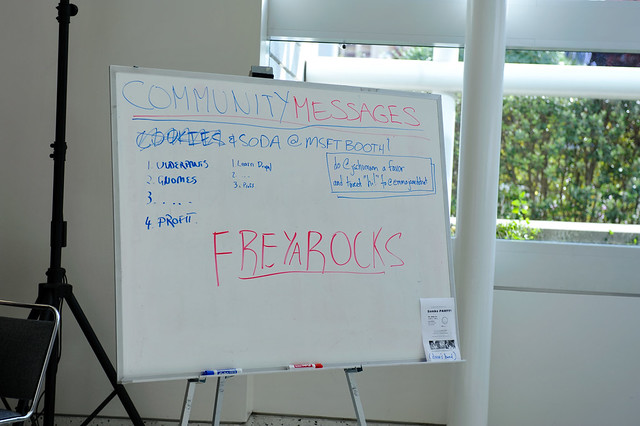 COMMUNITY MESSAGES
COOKIES & SODA @ MSFT BOOTH!
1. UNDERPANTS
2. GNOMES
3. . . . . .
4. PROFIT.
1. Learn
2. . . .
3.
do @jchrisman a favor
and tweet "hi" to
FREYA ROCKS